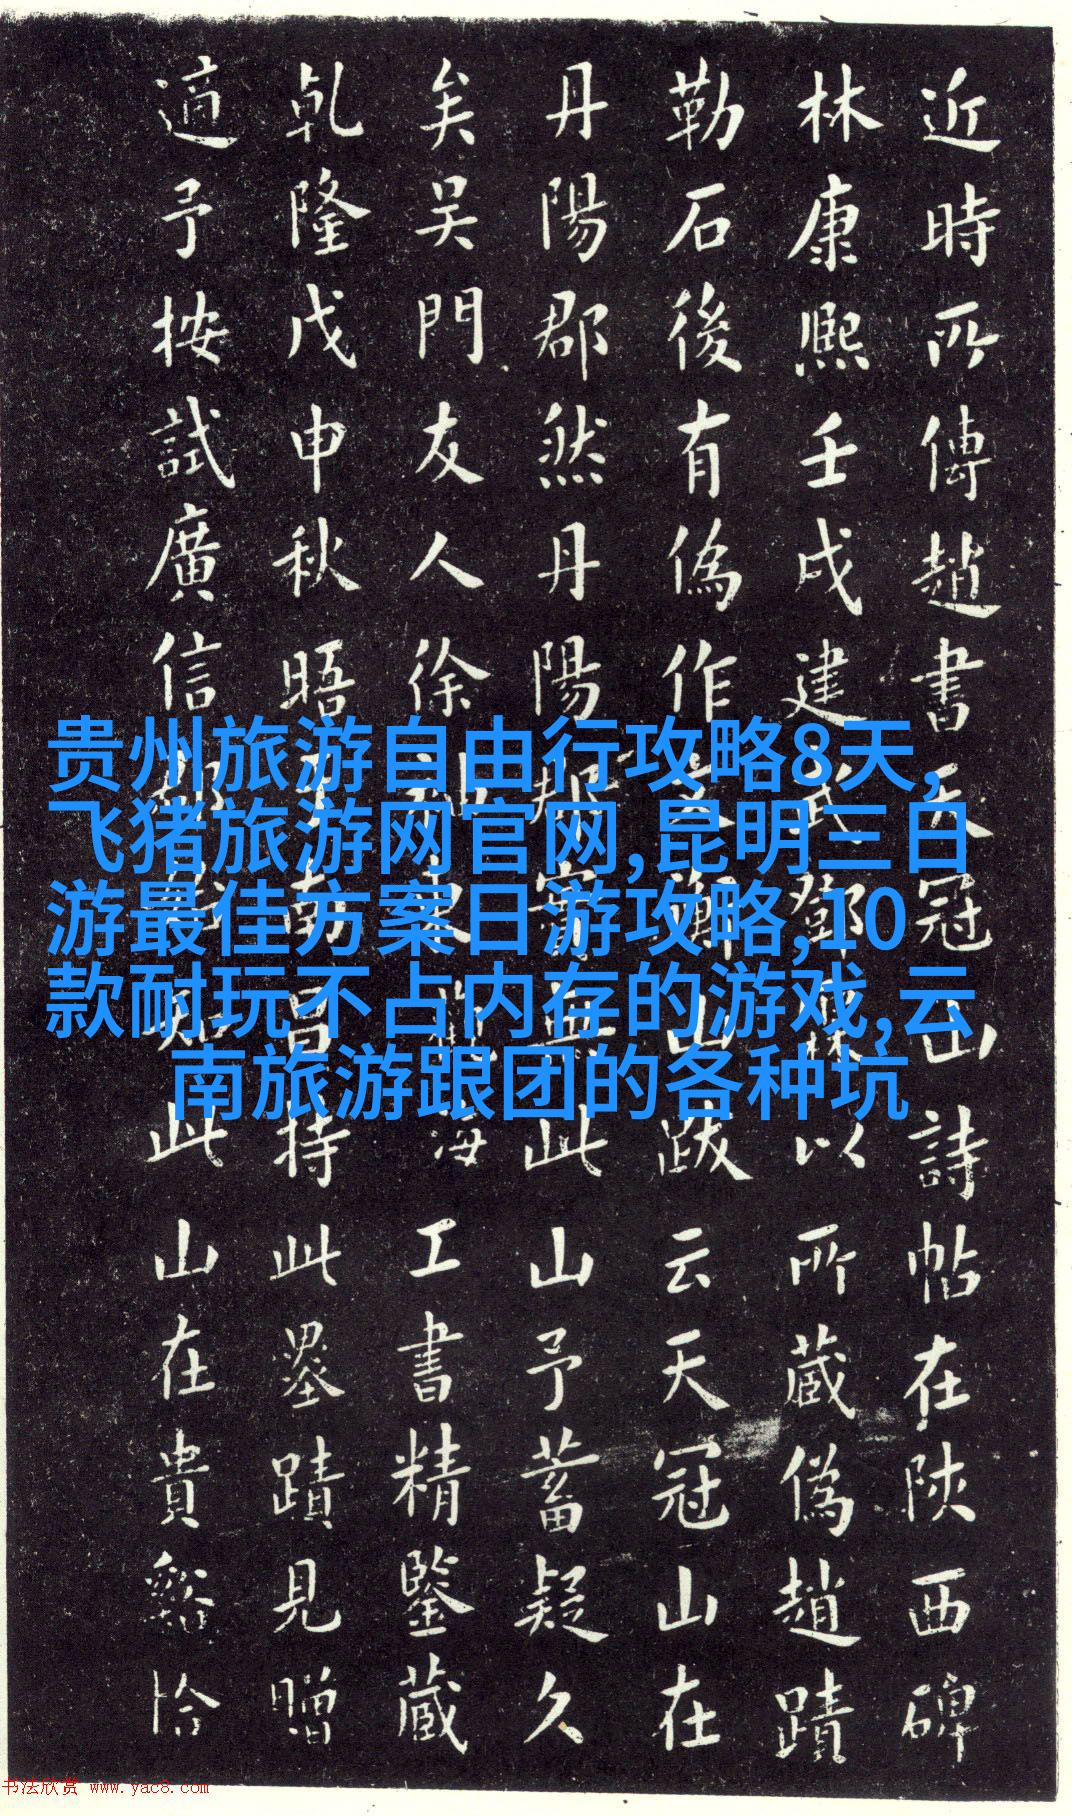 近時所傳趙書天冠山詩帖在陝西碑
林康熙壬戌建武鄧霖以所藏偽趙蹟
勒石後有偽作文衡山跋云天冠山在
丹陽郡然丹陽郡實無此山予蓄疑久
矣吳門友人徐海工書精鑒藏
乾隆戊申秋晤于南昌持此墨蹟見贈
適予按試廣信知此山在貴谿恰
贵州旅游自由行攻略8天,
飞猪旅游网官网,昆明三日
游最佳方案日游攻略,10
款耐玩不占内存的游戏,云
南旅游跟团的各种坑
书法欣赏 www.yac8.com